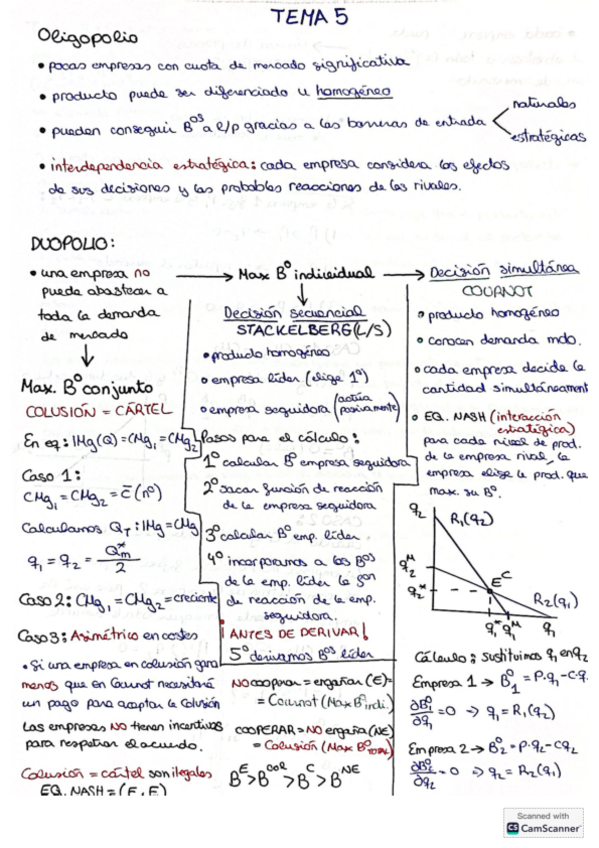 TEMA 5
Oligopolio
• pocas empresas con cuota de mercado significativa
• producto puede ser diferenciado u homogéneo
• pueden conseguir Bºˢ a l/p gracias a las barreras de entrada < naturales
estratégicas
• interdependencia estratégica: cada empresa considera los efectos
de sus decisiones y las probables reacciones de los rivales.
DUOPOLIO:
• una empresa no
puede abastecer a
toda la demanda
de mercado
↓
Max. Bº conjunto
COLUSIÓN = CÁRTEL
En eq: IMg(Q) = CMg₁ = CMg₂
Caso 1:
CMg₁ = CMg₂ = c̄ (nº)
Calculamos Q_T : IMg = CMg
q₁ = q₂ = Q*m / 2
Caso 2: CMg₁ = CMg₂ = creciente
Caso 3: Asimétrico en costes
• Si una empresa en colusión gana
menos que en Cournot necesitará
un pago para aceptar la colusión
Las empresas NO tienen incentivos
para respetar el acuerdo.
Colusión = cártel son ilegales
EQ. NASH = (E, E)
→ Max Bº individual →
↓
Decisión secuencial
STACKELBERG (L/S)
• producto homogéneo
• empresa líder (elige 1º)
• empresa seguidora (actúa
pasivamente)
Pasos para el cálculo:
1º calcular Bº empresa seguidora
2º sacar función de reacción
de la empresa seguidora
3º calcular Bº emp. líder
4º incorporamos a los Bºˢ
de la emp. líder la fon
de reacción de la emp.
seguidora.
¡ANTES DE DERIVAR!
5º derivamos Bºˢ líder
NO cooprar = engañar (E) =
= Cournot (Max Bº indi.)
COOPERAR = NO engaña (NE)
= Colusión (Max Bº TOTAL)
Bᴱ > Bᶜᵒᴸ > Bᶜ > Bᴺᴱ
Decisión simultánea
COURNOT
• producto homogéneo
• conocen demanda mdo.
• cada empresa decide la
cantidad simultáneament
• EQ. NASH (interacción
estratégica)
para cada nivel de prod.
de la empresa rival, la
empresa elige la prod. que
max. su Bº.
q₂
R₁(q₂)
q₂ᴹ
q₂*
Eᶜ
R₂(q₁)
q₁* q₁ᴹ q₁
Cálculo: sustituimos q₁ en q₂
Empresa 1 → Bº₁ = P·q₁ - C·q₁
∂Bº₁/∂q₁ = 0 ⇒ q₁ = R₁(q₂)
Empresa 2 → Bº₂ = P·q₂ - Cq₂
∂Bº₂/∂q₂ = 0 ⇒ q₂ = R₂(q₁)
Scanned with
CS CamScanner